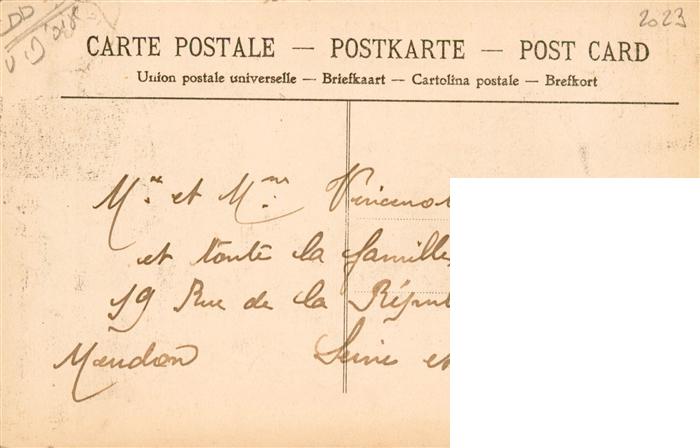 2023
CARTE POSTALE — POSTKARTE — POST CARD
Union postale universelle — Briefkaart — Cartolina postale — Brefkort
Mr et Mme
et toute la famille
19 Rue de la
Meudon Seine et